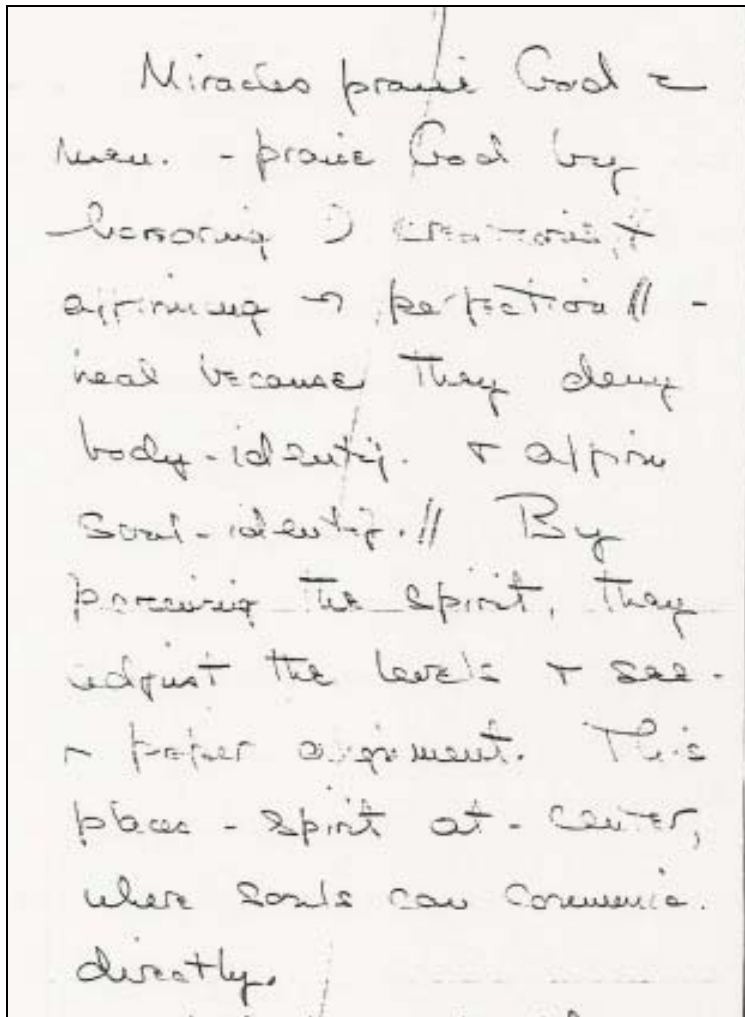 Miracles praise God &
men. - praise God by
honoring creations, &
affirming perfection // -
heal because they deny
body-identif. & affirm
Soul-identif. // By
perceiving the Spirit, they
adjust the levels & see -
proper alignment. This
places - spirit at - center,
where souls can communic.
directly.